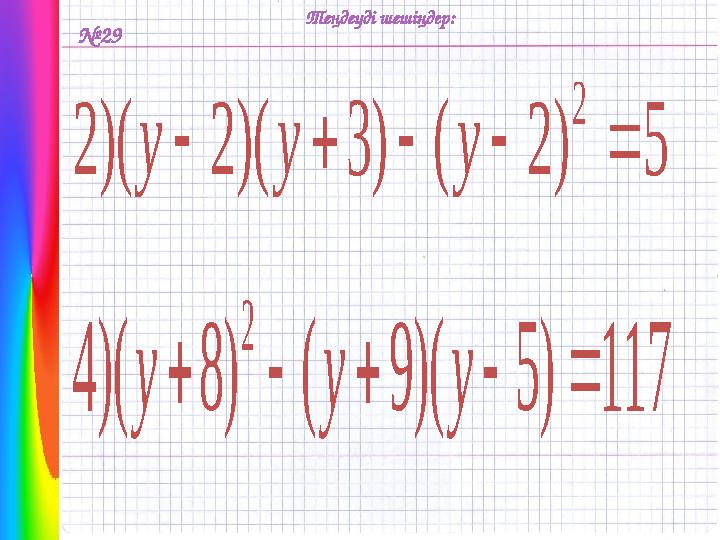 Теңдеуді шешіңдер:
№29
2)(y - 2)(y + 3) - (y - 2)² = 5
4)(y + 8)² - (y + 9)(y - 5) = 117